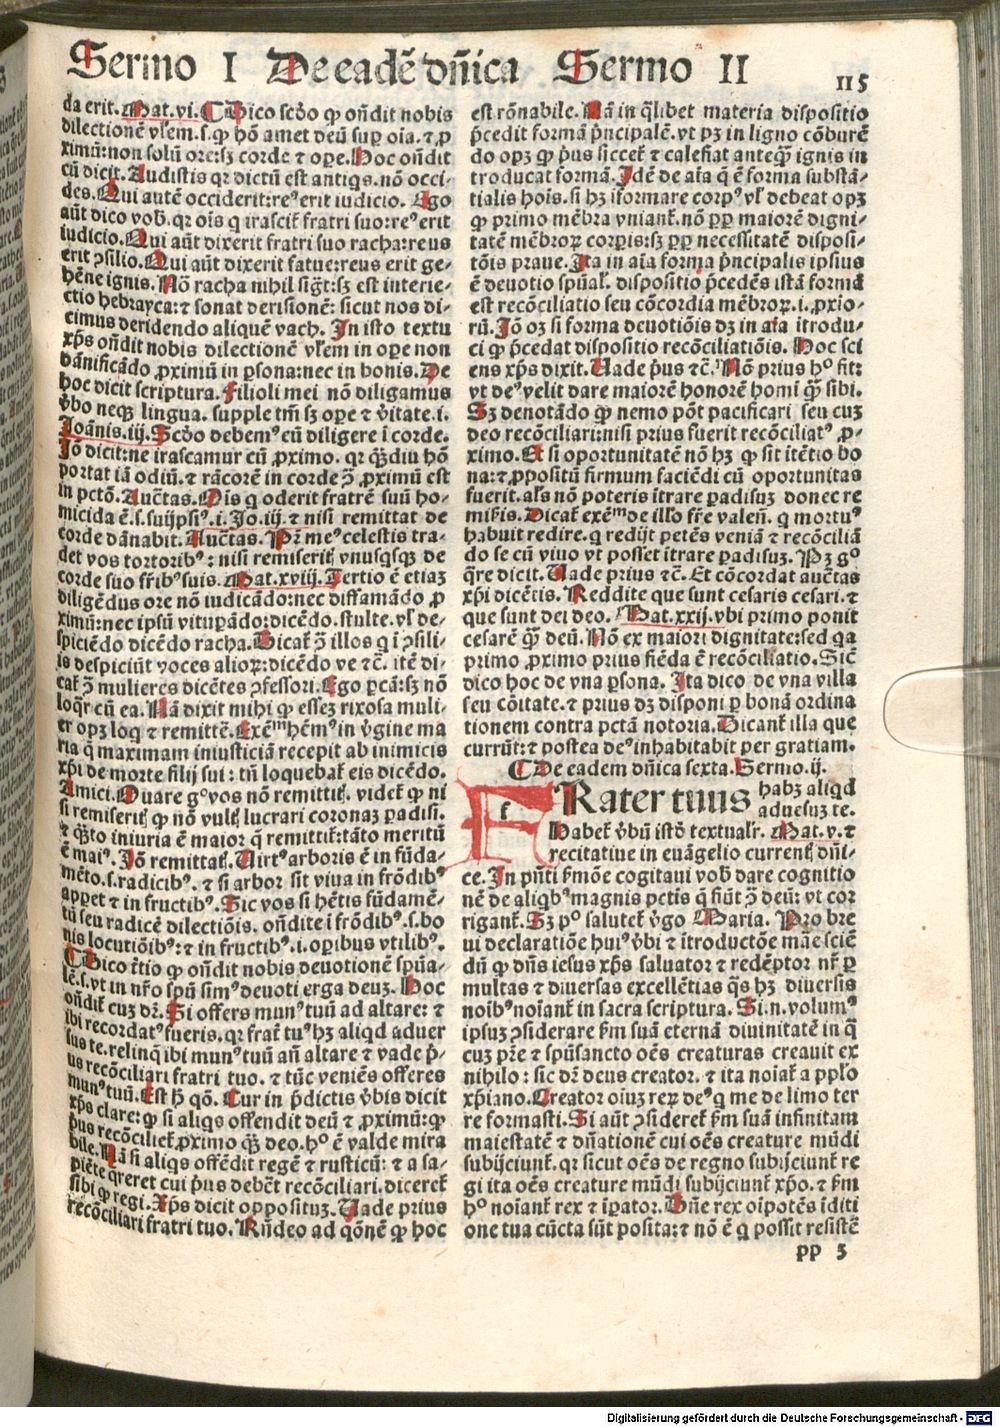 Sermo I De eadē dñica Sermo II
115
da erit. Mat. vi. ¶ Dico scďo ꝙ oñdit nobis
dilectionē vľem. s. ꝙ hō amet deū sup oīa. ⁊ ꝓ
ximū: non solū ore: sꝫ corde ⁊ ope. Hoc oñdit
cū dicit. Audistis qꝛ dictū est antiqs. nō occi⸗
des. Qui autē occiderit: reꝰ erit iudicio. Ego
aūt dico vob̄. qꝛ oīs q irascit̄ fratri suo: reꝰ erit
iudicio. Qui aūt dixerit fratri suo racha: reus
erit ꝯsilio. Qui aūt dixerit fatue: reus erit ge⸗
hēne ignis. Nō racha nihil sigt̄: sꝫ est interie⸗
ctio hebrayca: ⁊ sonat derisionē: sicut nos di⸗
cimus deridendo aliquē vach. In isto textu
xp̄s oñdit nobis dilectionē vľem in ope non
dānificādo ꝓximū in ꝑsona: nec in bonis. De
hoc dicit scriptura. Filioli mei nō diligamus
v̄bo neqꝫ lingua. supple tm̄ sꝫ ope ⁊ v̄itate. i.
Joānis. iij. Scďo debemꝰ cū diligere ī corde.
Jō dicit: ne irascamur cū ꝓximo. qꝛ qꝫdiu hō
portat iā odiū. ⁊ rācorē in corde ꝯ̄ ꝓximū est
in pctō. Auc̄tas. Ois q oderit fratrē suū ho⸗
micida ē. s. suijpsiꝰ. i. Jo. iij. ⁊ nisi remittat de
corde dānabit̄. Auc̄tas. Pr̄ meꝰ celestis tra⸗
det vos tortoribꝰ: nisi remiserit̄ vnusqsqꝫ de
corde suo fr̄ibꝰ suis. Mat. xviij. Tertio ē etiaꝫ
diligēdus ore nō iudicādo: nec diffamādo ꝓ
ximū: nec ipsū vituꝑādo: dicēdo. stulte. vľ de⸗
spiciēdo dicēdo racha. Dicat̄ ꝯ̄ illos q ī ꝯsili⸗
is despiciūt voces alioꝝ: dicēdo ve ⁊c̄. itē di⸗
cat̄ ꝯ̄ mulieres dicētes ꝯfessori. Ego pcā: sꝫ nō
loqr̄ cū ea. Nā dixit mihi ꝙ esseꝫ rixosa muli⸗
er opꝫ loq ⁊ remittē. Exēᵐ hēmꝰ in v̄gine ma
ria q̄ maximam iniusticiā recepit ab inimicis
xp̄i de morte filij sui: tn̄ loquebat̄ eis dicēdo.
Amici. Quare gᵒ vos nō remittit̄. videt̄ ꝙ ni
si remiserit̄ ꝙ nō vult̄ lucrari coronaꝫ ꝑadisi.
⁊ qꝫto iniuria ē maior q̄ remittit̄: tāto meritū
ē maiꝰ. Jō remittat̄. Virtꝰ arboris ē in fūda⸗
mēto. s. radicibꝰ. ⁊ si arbor sit viva in frōdibꝰ
appet ⁊ in fructibꝰ. Sic vos si hētis fūdamē⸗
tū seu radicē dilectiōis. oñdite ī frōdibꝰ. s. bo
nis locutiōibꝰ: ⁊ in fructibꝰ. i. oꝑibus vtilibꝰ.
¶ Dico t̄tio ꝙ oñdit nobis deuotionē spūa⸗
lē. s. vt in nr̄o spū simꝰ deuoti erga deuꝫ. Hoc
oñdit̄ cuꝫ dꝛ̄. Si offers munꝰ tuū ad altare: ⁊
ibi recordatꝰ fueris. qꝛ frat̄ tuꝰ hꝫ aliqd aduer
sus te. relinq̄ ibi munꝰ tuū añ altare ⁊ vade p̄⸗
us recōciliari fratri tuo. ⁊ tūc veniēs offeres
munꝰ tuū. Est h̄ qō. Cur in p̄dictis v̄bis dicit
xp̄s clare: ꝙ si aliqs offendit deū ⁊ ꝓximū: ꝙ
p̄us recōciliet̄ ꝓximo qꝫ deo. hᵒ ē valde mira
bile. Nā si aliqs offēdit regē ⁊ rusticū: ⁊ a sa⸗
piēte q̄reret cui p̄us debēt recōciliari. diceret̄
sibi ꝙ regi. Xp̄s dicit oppositum. Vade prius
recōciliari fratri tuo. Rn̄deo ad qōnē ꝙ hoc
est rōnabile. Nā in q̄libet materia dispositio
p̄cedit formā p̄ncipalē. vt pꝫ in ligno cōburē
do opꝫ ꝙ p̄us siccet̄ ⁊ calefiat anteqꝫ ignis in
troducat formā. Idē de aīa q̄ ē forma substā⸗
tialis hoīs. si hꝫ īformare corpꝰ vľ debeat opꝫ
ꝙ primo mēbra vniant̄. nō ꝓp maiorē digni⸗
tatē mēbroꝝ corpis: sꝫ ꝓp necessitatē disposi⸗
tōis praue. Ita in aīa forma p̄ncipalis ipsius
ē deuotio spūal̄. dispositio p̄cedēs istā formā
est recōciliatio seu cōcordia mēbroꝝ. i. ꝓxio⸗
rū. Jō oꝫ si forma deuotiōis dꝫ in aīa ītrodu⸗
ci ꝙ p̄cedat dispositio recōciliatiōis. Hoc sci
ens xp̄s dixit. Vade p̄us ⁊c̄. Nō prius hᵒ fit:
vt deꝰ velit dare maiorē honorē homī qꝫ sibi.
Sꝫ denotādo ꝙ nemo pōt pacificari seu cuꝫ
deo recōciliari: nisi prius fuerit recōciliatꝰ ꝓ⸗
ximo. Et si oportunitatē nō hꝫ ꝙ sit itētio bo
na: ⁊ ꝓpositū firmum faciēdi cū oportunitas
fuerit. al̄s nō poteris ītrare ꝑadisuꝫ donec re
mit̄is. Dicat̄ exēᵐ de illo fr̄e valeñ. q mortuꝰ
habuit redire. q redijt petēs veniā ⁊ recōciliā
do se cū viuo vt posset ītrare ꝑadisuꝫ. Pꝫ gᵒ
q̄re dicit. Vade prius ⁊c̄. Et cōcordat auc̄tas
xp̄i dicētis. Reddite que sunt cesaris cesari. ⁊
que sunt dei deo. Mat. xxij. vbi primo ponit
cesarē qꝫ deū. Nō ex maiori dignitate: sed qa
primo ꝓximo prius fiēda ē recōciliatio. Sic̄
dico hoc de vna ꝑsona. Ita dico de vna villa
seu cōitate. ⁊ prius dꝫ disponi ꝑ bonā ordina
tionem contra pctā notoria. Dicant̄ illa que
currūt: ⁊ postea deꝰ inhabitabit per gratiam.
¶ De eadem dñica sexta. Sermo. ij.
FRater tuus habꝫ aliqd
aduersuꝫ te.
Habet̄ v̄bū istō textualr̄. Mat. v. ⁊
recitatiue in euāgelio currentꝭ dñi⸗
ce. In pn̄ti f̄mōe cogitaui vob̄ dare cognitio
nē de aliqbꝰ magnis pctis q̄ fiūt ꝯ̄ deū: vt cor
rigant̄. Sꝫ pᵒ salutet̄ v̄go Maria. Pro bre
ui declaratiōe huiꝰ v̄bi ⁊ ītroductōe māe sciē
dū ꝙ dn̄s iesus xp̄s saluator ⁊ redēptor nr̄ ꝑ
multas ⁊ diuersas excellētias qs hꝫ diuersis
noībꝰ noiant̄ in sacra scriptura. Si. n. volumꝰ
ipsuꝫ ꝯsiderare ẜm suā eternā diuinitatē in q̄
cuꝫ pr̄e ⁊ spūsancto oēs creaturas creauit ex
nihilo: sic dꝛ̄ deus creator. ⁊ ita noiat̄ a pplo
xp̄iano. Creator oiuꝫ rex deꝰ q me de limo ter
re formasti. Si aūt ꝯsideret̄ ẜm suā infinitam
maiestatē ⁊ dn̄ationē cui oēs creature mūdi
subijciunt̄. qꝛ sicut oēs de regno subijciunt̄ re
gi ita oēs creature mūdi subijciunt̄ xp̄o. ⁊ ẜm
hᵒ noiant̄ rex ⁊ īpator. Dn̄e rex oīpotēs īditi
one tua cūcta sūt posita: ⁊ nō ē q possit resistē
pp 5
Digitalisierung gefördert durch die Deutsche Forschungsgemeinschaft - DFG